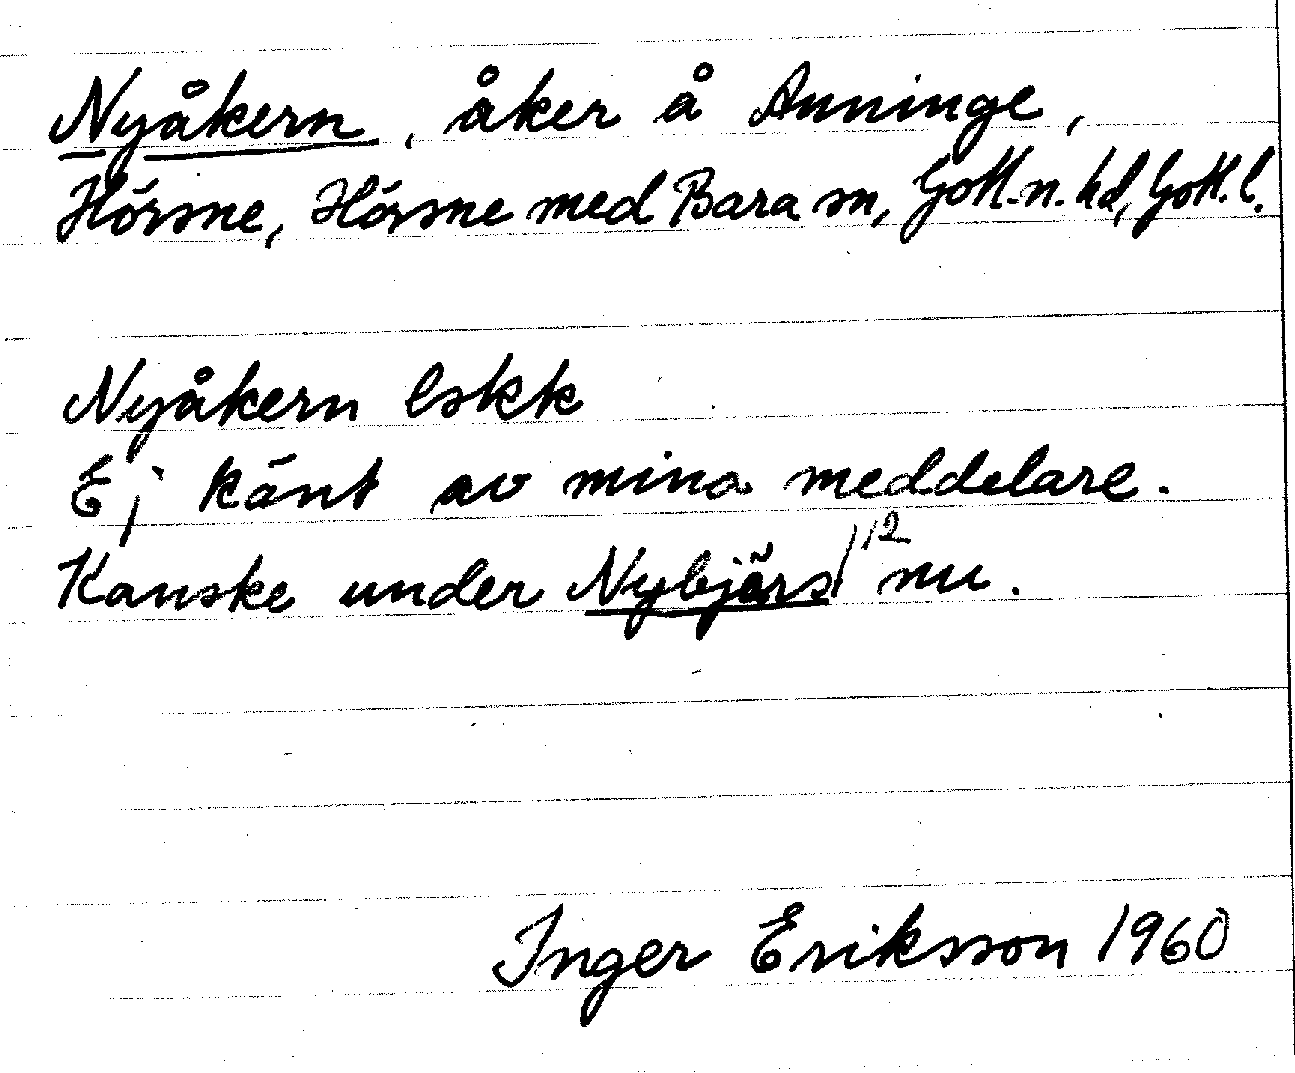 Nyåkern, åker å Anninge,
Hörsne, Hörsne med Bara sn, Gotl. n. hd, Gotl. l.
Nyåkern lskk
Ej känt av mina meddelare.
Kanske under Nybjärs/12 nu.
Inger Eriksson 1960